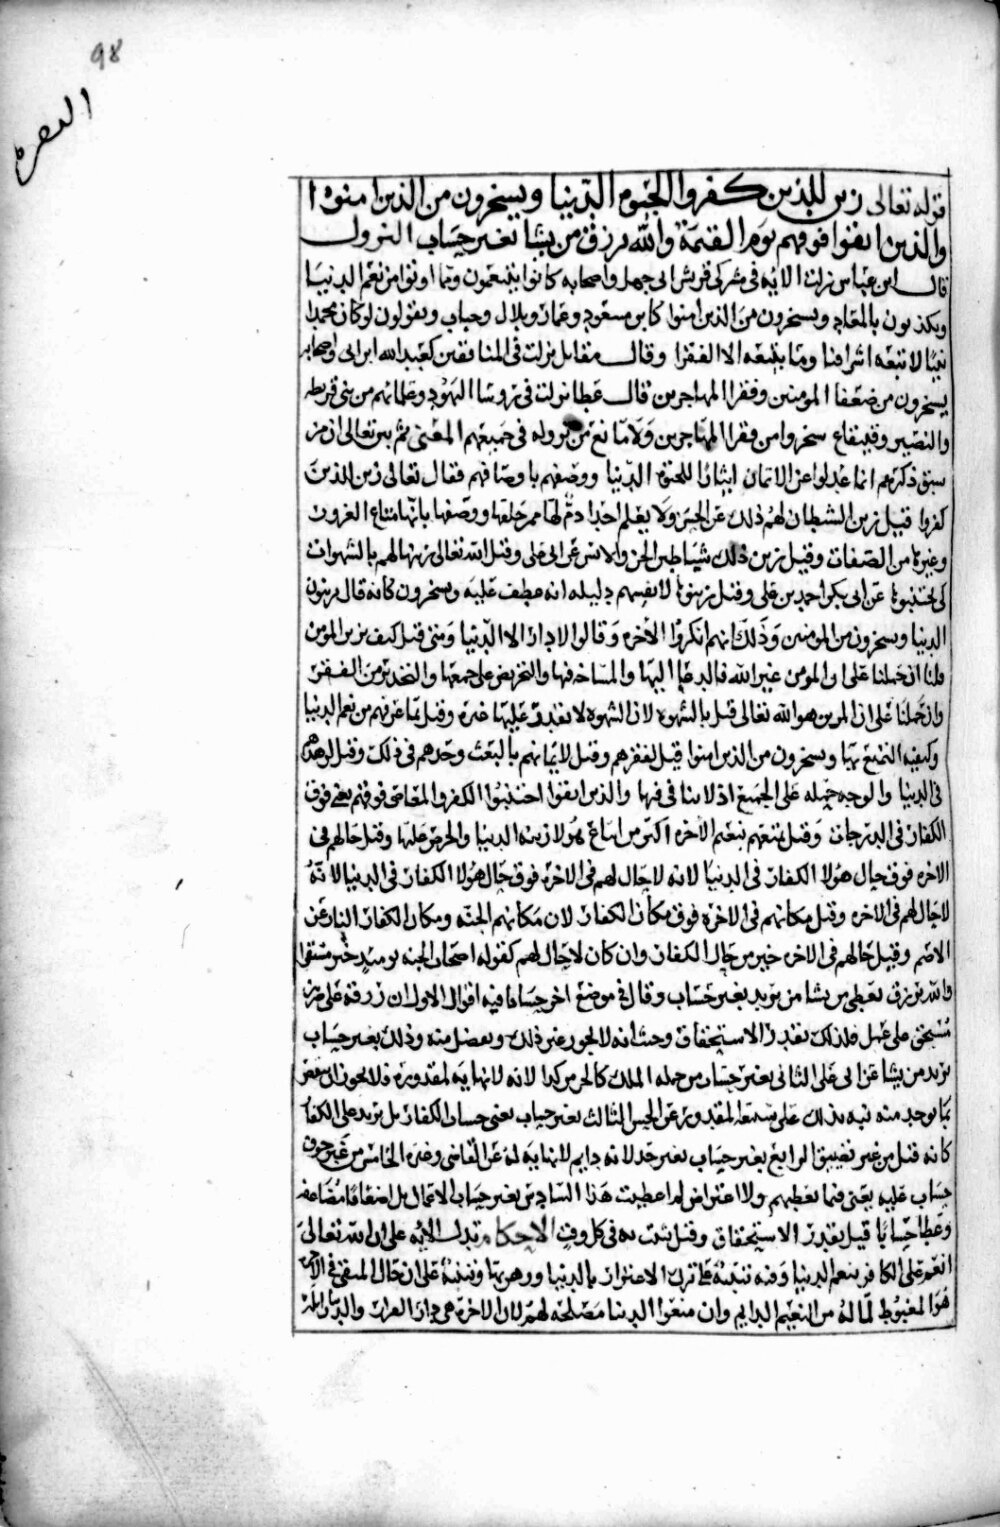 98
البقرة
قوله تعالى زين للذين كفروا الحيوة الدنيا ويسخرون من الذين امنوا
والذين اتقوا فوقهم يوم القيمة والله يرزق من يشا بغير حساب النزول
قال ابن عباس نزلت الايه في مشركي قريش ابى جهل واصحابه كانوا يتنعمون بما اوتوا من نعم الدنيا
ويكذبون بالمعاد ويسخرون من الذين امنوا كابن مسعود وعمار وبلال وخباب ويقولون لو كان محمدا
نبيا لاتبعه اشرافنا وما يتبعه الا الفقرا وقال مقاتل نزلت في المنافقين كعبد الله ابن ابى واصحابه
يسخرون من ضعفا المومنين وفقرا المهاجرين قال عطا نزلت في روسا اليهود وعلمائهم من بني قريظه
والنضير وقينقاع سخروا من فقرا المهاجرين ولا مانع من نزوله في جميعهم المعنى ثم بين تعالى ان من
سبق ذكرهم انما عدلوا عن الايمان ايثارا للحيوة الدنيا ووصفهم باوصافهم فقال تعالى زين للذين
كفروا قيل زين الشيطان لهم ذلك عن الحسن ولا يعلم احدا ذم لها ممن خلقها ووصفها بانها متاع الغرور
وغيرها من الصفات وقيل زين ذلك شياطين الجن والانس عن ابى على وقيل الله تعالى زينها لهم بالشهوات
كي يجتنبوها عن ابى بكر احمد بن على وقيل زينوها لانفسهم دليله انه عطف عليه ويسخرون كانه قال يزينون
الدنيا ويسخرون من المومنين وذلك انهم انكروا الآخره وقالوا لا دار الا الدنيا ومتى قيل كيف يزين المزين
قلنا ان حملنا على ان المزين غير الله فالدعا اليها والتحريض على جمعها والتحذير من الفقر
وان حملنا على ان المزين هو الله تعالى قيل بالشهوه لان الشهوه لا يقدر عليها غيره وقيل بما عرفهم من نعم الدنيا
وكيفيه التمتع بها ويسخرون من الذين امنوا قيل لفقرهم وقيل لايمانهم بالبعث وجدهم في ذلك وقيل لزهدهم
في الدنيا والوجه حمله على الجميع اذ لا تنافي فيها والذين اتقوا اجتنبوا الكفر والمعاصى فوقهم يعني فوق
الكفار في الدرجات وقيل تمتعهم بنعيم الاخره اكثر من هولا زينه الدنيا والحرص عليها وقيل حالهم في
الاخره فوق حال هولا الكفار في الدنيا لانه لا حال لهم في الاخرة فوق حال هولا الكفار في الدنيا لانه
لا حال لهم في الاخره وقيل مكانهم في الاخره فوق مكان الكفار لان مكانهم الجنه ومكان الكفار النار عن
الاصم وقيل حالهم في الاخره خير من حال الكفار وان كان لا حال لهم كقوله اصحاب الجنه يومئذ خير مستقرا
والله يرزق يعطي من يشا من يريد بغير حساب وقال في موضع اخر حسابا فيه اقوال الاول ان رزقه على
مستحق على عمل فذلك بقدر الاستحقاق وحسابه لا يجوز غير ذلك وتفضل منه وذلك بغير حساب
يريد من يشا عن ابى على الثاني بغير حساب لانه لا نهايه لمقدوره فلا يجوز ان
الثالث بغير حساب يعني حساب الكفار بل يزيد على الكفا
كانه قيل من غير تضييق الرابع بغير حساب بغير حد لانه دايم لا نهايه له عن القاضى وغيره الخامس من غير خوف
حساب عليه يعني فيما يعطيهم ولا اعتراض لم اعطيت هذا السادس بغير حساب الاعمال بل اضعافا مضاعفه
وعطا حسابا قيل بقدر الاستحقاق وقيل في كل وقت الاحكام تدل الايه على ان الله تعالى
انعم على الكافر بنعم الدنيا وفيه تنبيه الاغترار بالدنيا وزهرتها وتنبيه على ان حال المتقي في الآخرة
هو المغبوط لما له من النعيم الدايم وان منعوا الدنيا مصلحه لهم لان الاخرة هي دار القرار